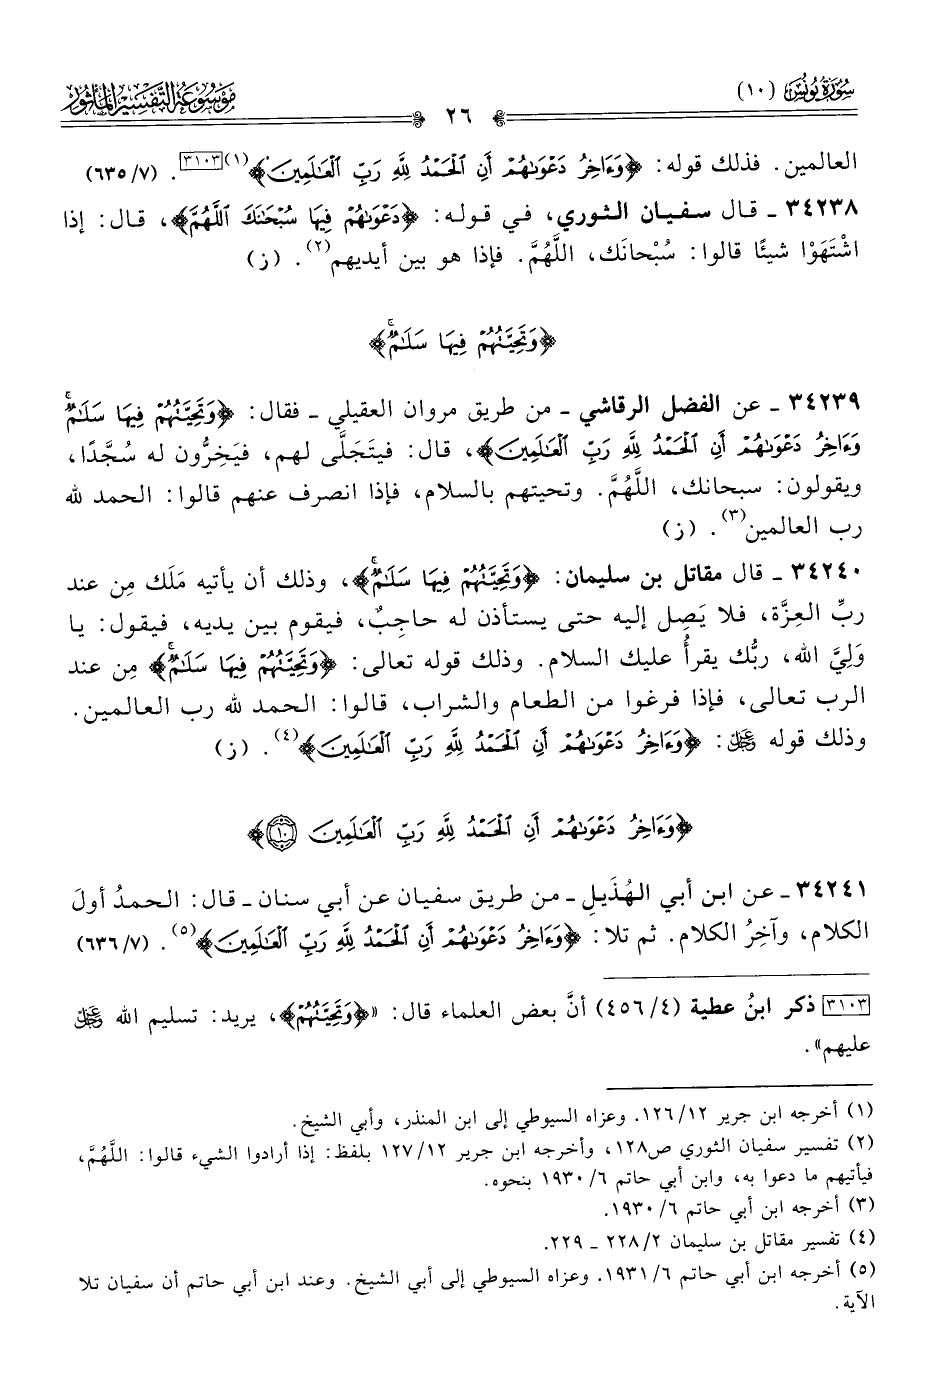 سُورَةُ يُونُسَ (١٠)
٢٦
مَوْسُوعَةُ التَّفْسِيرِ المَأْثُور
العالمين. فذلك قوله: ﴿وَءَاخِرُ دَعْوَىٰهُمْ أَنِ الْحَمْدُ لِلَّهِ رَبِّ الْعَـٰلَمِينَ﴾(١)[٣١٠٣]. (٧/ ٦٣٥)
٣٤٢٣٨ ـ قال سفيان الثوري، في قوله: ﴿دَعْوَىٰهُمْ فِيهَا سُبْحَـٰنَكَ اللَّهُمَّ﴾، قال: إذا
اشْتَهَوْا شيئًا قالوا: سُبْحانَك، اللَّهُمَّ. فإذا هو بين أيديهم(٢). (ز)
﴿وَتَحِيَّتُهُمْ فِيهَا سَلَـٰمٌۚ﴾
٣٤٢٣٩ ـ عن الفضل الرقاشي ـ من طريق مروان العقيلي ـ فقال: ﴿وَتَحِيَّتُهُمْ فِيهَا سَلَـٰمٌۚ
وَءَاخِرُ دَعْوَىٰهُمْ أَنِ الْحَمْدُ لِلَّهِ رَبِّ الْعَـٰلَمِينَ﴾، قال: فيتَجَلَّى لهم، فيَخِرُّون له سُجَّدًا،
ويقولون: سبحانك، اللَّهُمَّ. وتحيتهم بالسلام، فإذا انصرف عنهم قالوا: الحمد لله
رب العالمين(٣). (ز)
٣٤٢٤٠ ـ قال مقاتل بن سليمان: ﴿وَتَحِيَّتُهُمْ فِيهَا سَلَـٰمٌۚ﴾، وذلك أن يأتيه مَلَك مِن عند
ربِّ العِزَّة، فلا يَصِل إليه حتى يستأذن له حاجِبٌ، فيقوم بين يديه، فيقول: يا
وَلِيَّ الله، ربُّك يقرأُ عليك السلام. وذلك قوله تعالى: ﴿وَتَحِيَّتُهُمْ فِيهَا سَلَـٰمٌۚ﴾ مِن عند
الرب تعالى، فإذا فرغوا من الطعام والشراب، قالوا: الحمد لله رب العالمين.
وذلك قوله ﷿: ﴿وَءَاخِرُ دَعْوَىٰهُمْ أَنِ الْحَمْدُ لِلَّهِ رَبِّ الْعَـٰلَمِينَ﴾(٤). (ز)
﴿وَءَاخِرُ دَعْوَىٰهُمْ أَنِ الْحَمْدُ لِلَّهِ رَبِّ الْعَـٰلَمِينَ ۝١٠﴾
٣٤٢٤١ ـ عن ابن أبي الهُذَيلِ ـ من طريق سفيان عن أبي سنان ـ قال: الحمدُ أولَ
الكلام، وآخِرُ الكلام. ثم تلا: ﴿وَءَاخِرُ دَعْوَىٰهُمْ أَنِ الْحَمْدُ لِلَّهِ رَبِّ الْعَـٰلَمِينَ﴾(٥). (٧/ ٦٣٦)
[٣١٠٣] ذكر ابنُ عطية (٤/ ٤٥٦) أنَّ بعض العلماء قال: «﴿وَتَحِيَّتُهُمْ﴾، يريد: تسليم الله ﷿
عليهم».
(١) أخرجه ابن جرير ١٢/ ١٢٦. وعزاه السيوطي إلى ابن المنذر، وأبي الشيخ.
(٢) تفسير سفيان الثوري ص١٢٨، وأخرجه ابن جرير ١٢/ ١٢٧ بلفظ: إذا أرادوا الشيء قالوا: اللَّهُمَّ،
فيأتيهم ما دعوا به، وابن أبي حاتم ٦/ ١٩٣٠ بنحوه.
(٣) أخرجه ابن أبي حاتم ٦/ ١٩٣٠.
(٤) تفسير مقاتل بن سليمان ٢/ ٢٢٨ ـ ٢٢٩.
(٥) أخرجه ابن أبي حاتم ٦/ ١٩٣١. وعزاه السيوطي إلى أبي الشيخ. وعند ابن أبي حاتم أن سفيان تلا
الآية.